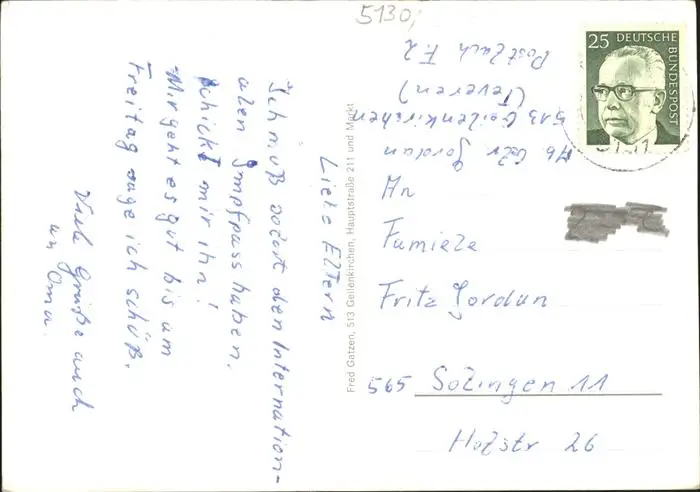 5130,
25 DEUTSCHE
BUNDESPOST
Postfach F.2
(Teveren)
513 Geilenkirchen
Jordan
Liebe Eltern
Ich muß sofort den Internation-
alen Impfpass haben.
Schickt mir ihn!
Mir geht es gut bis am
Freitag sage ich schüß.
Viele Grüße auch
an Oma.
Fred Gatzen, 513 Geilenkirchen, Hauptstraße 211 und Markt
An
Familie
Fritz Jordan
565 Solingen 11
Holzstr 26